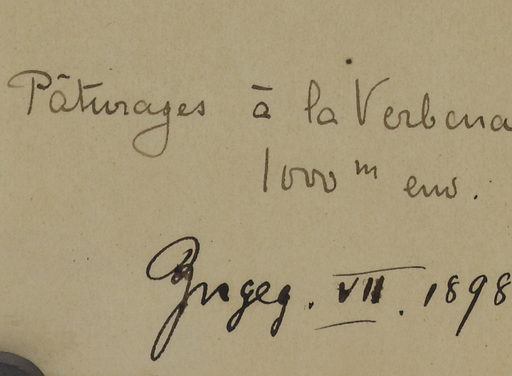 Pâturages à la Verbena
1000 m env.
VII. 1898